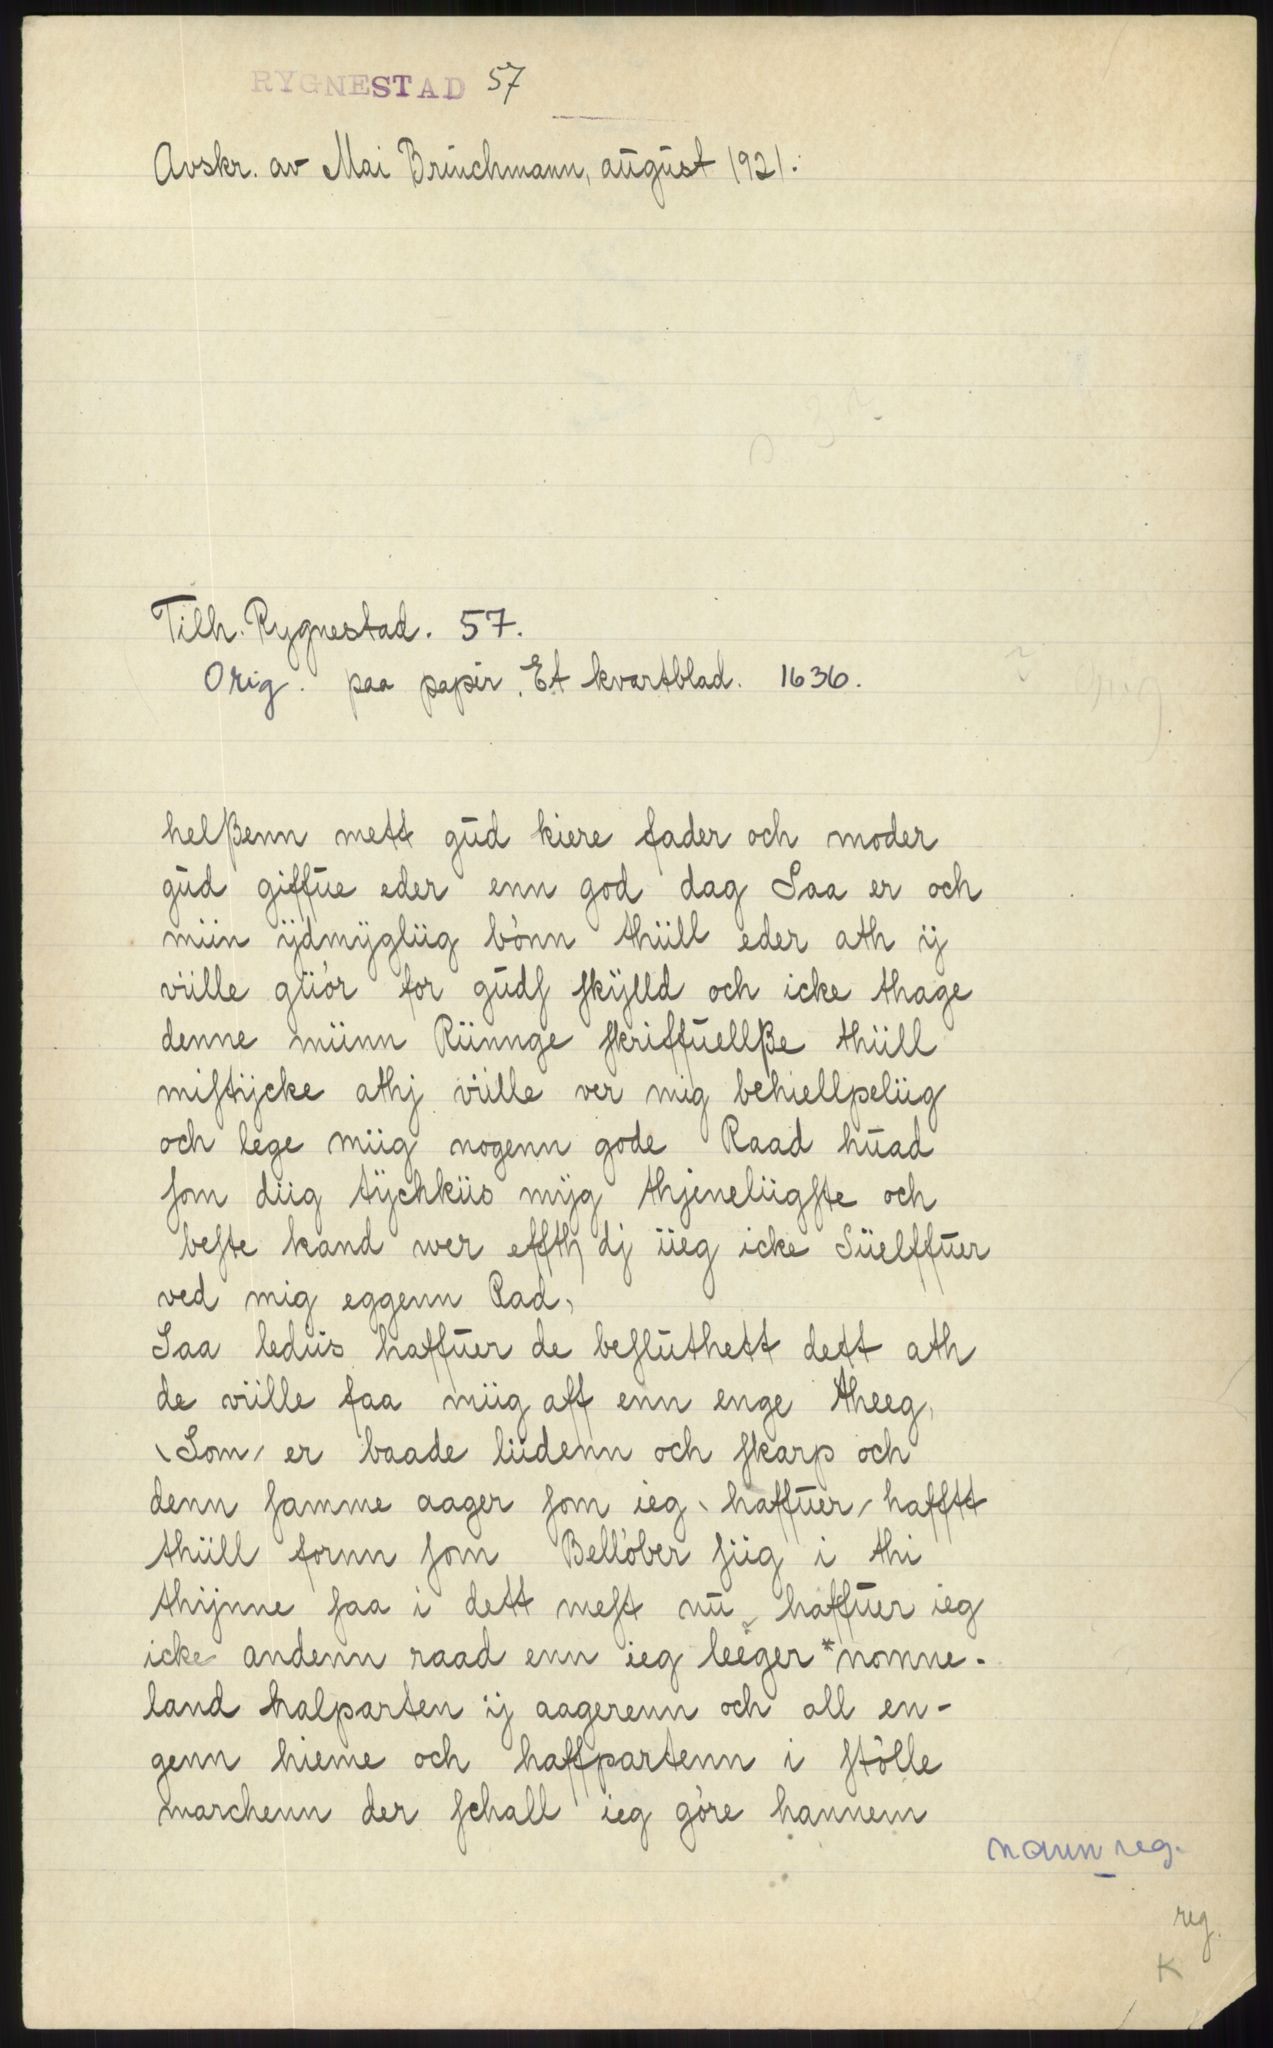 RYGNESTAD 57
Avskr. av Mai Brüchmann, august 1921.
Tilh. Rygnestad. 57.
Orig. paa papir. Et kvartblad. 1636.
helßenn mett gud kiere fader och moder
gud giffue eder enn god dag Saa er och
miin ÿdmÿgliig bönn thiill eder ath ij
viille giiör for gudſ ſkÿlld och icke thage
denne miinn Riinnge ſkriffuellße thiill
miſtÿcke athj viille ver mig behiellpeliig
och lege miig nogenn gode Raad huad
ſom diig tÿchkiis mÿg thjeneliigſte och
beſte kand wer effthj dj iieg icke Siielffuer
ved mig eggenn Rad,
Saa lediis haffuer de beſluthett dett ath
de viille faa miig aff enn enge theeg,
\Som/ er baade liidenn och ſkarp och
denn ſamme aager ſom ieg \haffuer/ hafftt
thiill fornn ſom Bellöber ſiig i thi
thijnne ſaa i dett meſt nu haffuer ieg
icke andenn raad enn ieg leeger *nomne-
land halparten ij aagerenn och all en-
genn hieme och haffpartenn i ſtölle
marchenn der ſchall ieg göre hannem
navn reg.
reg.
K